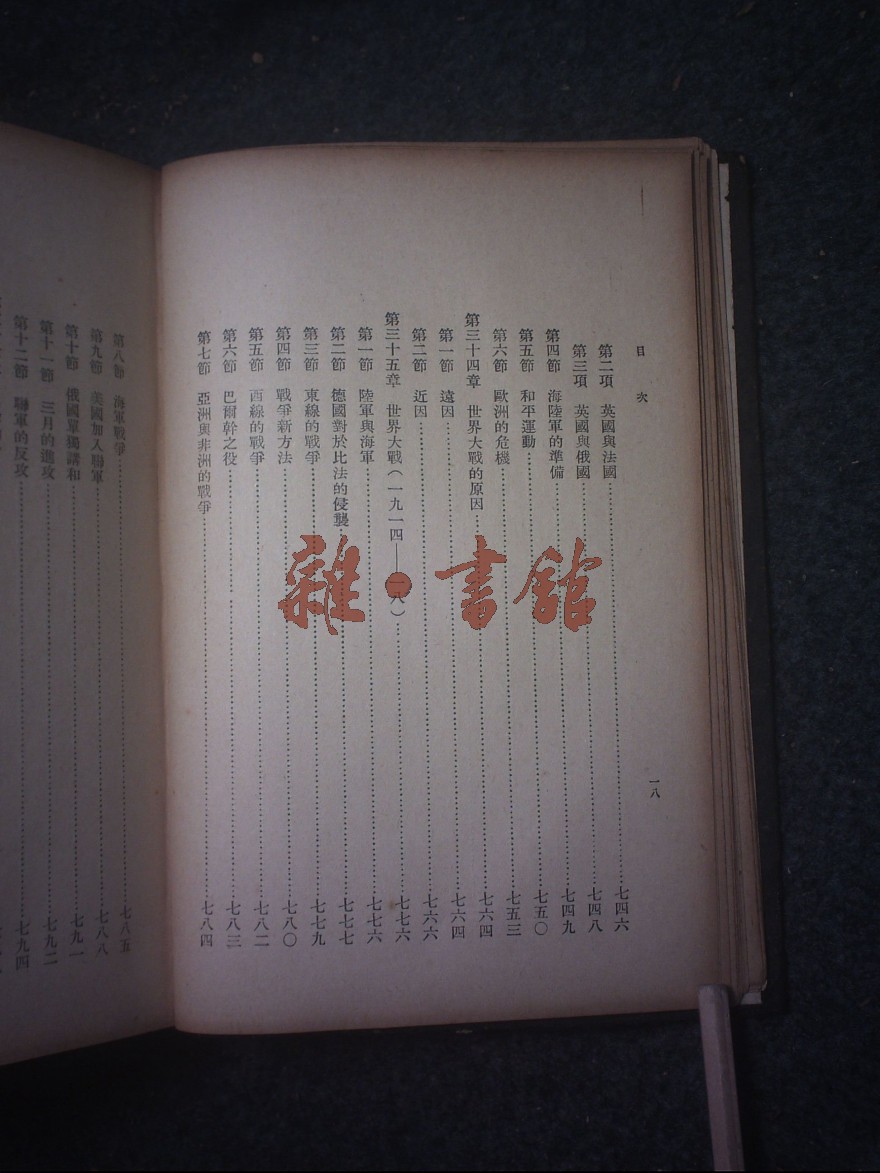 目次
一八
第二項 英國與法國……七四六
第三項 英國與俄國……七四八
第四節 海陸軍的準備……七四九
第五節 和平運動……七五〇
第六節 歐洲的危機……七五三
第三十四章 世界大戰的原因……七六四
第一節 遠因……七六四
第二節 近因……七六六
第三十五章 世界大戰(一九一四——一八)……七七六
第一節 陸軍與海軍……七七六
第二節 德國對於比法的侵襲……七七七
第三節 東線的戰爭……七七九
第四節 戰爭新方法……七八〇
第五節 西線的戰爭……七八二
第六節 巴爾幹之役……七八三
第七節 亞洲與非洲的戰爭……七八四
第八節 海軍戰爭……七八五
第九節 美國加入聯軍……七八八
第十節 俄國單獨講和……七九一
第十一節 三月的進攻……七九二
第十二節 聯軍的反攻……七九四
雜·書館